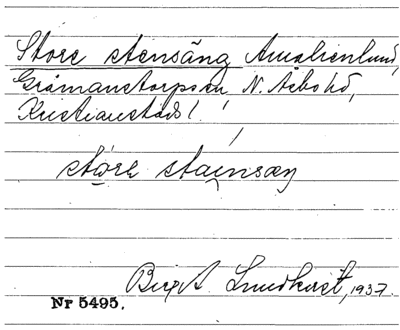 Store stensäng Amalienlund,
Gråmanstorpssn, N. Åsbo hd,
Kristianstads l.
støre stainsæŋ
Birgit Lundkvist, 1937.
Nr 5495.